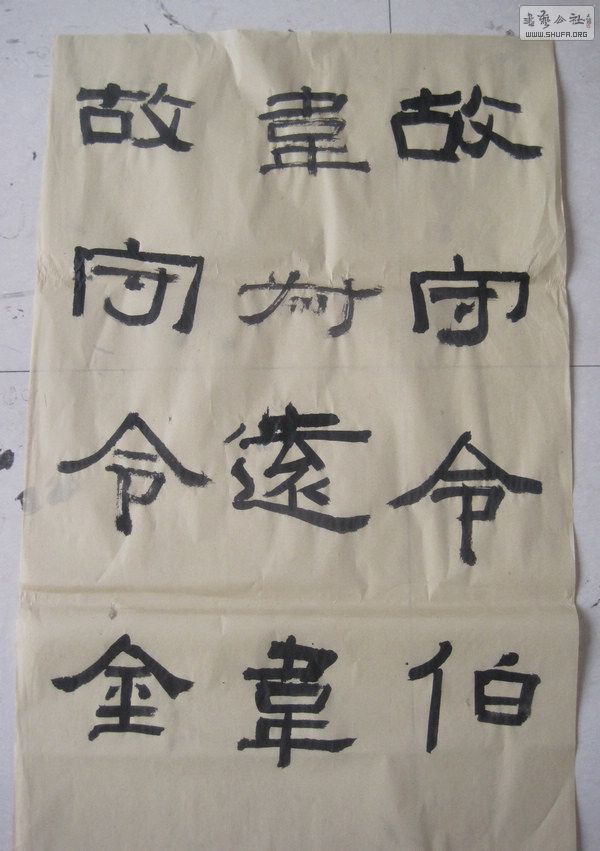 故守令伯
韋叔遠韋
故守令金
書藝公社
WWW.SHUFA.ORG